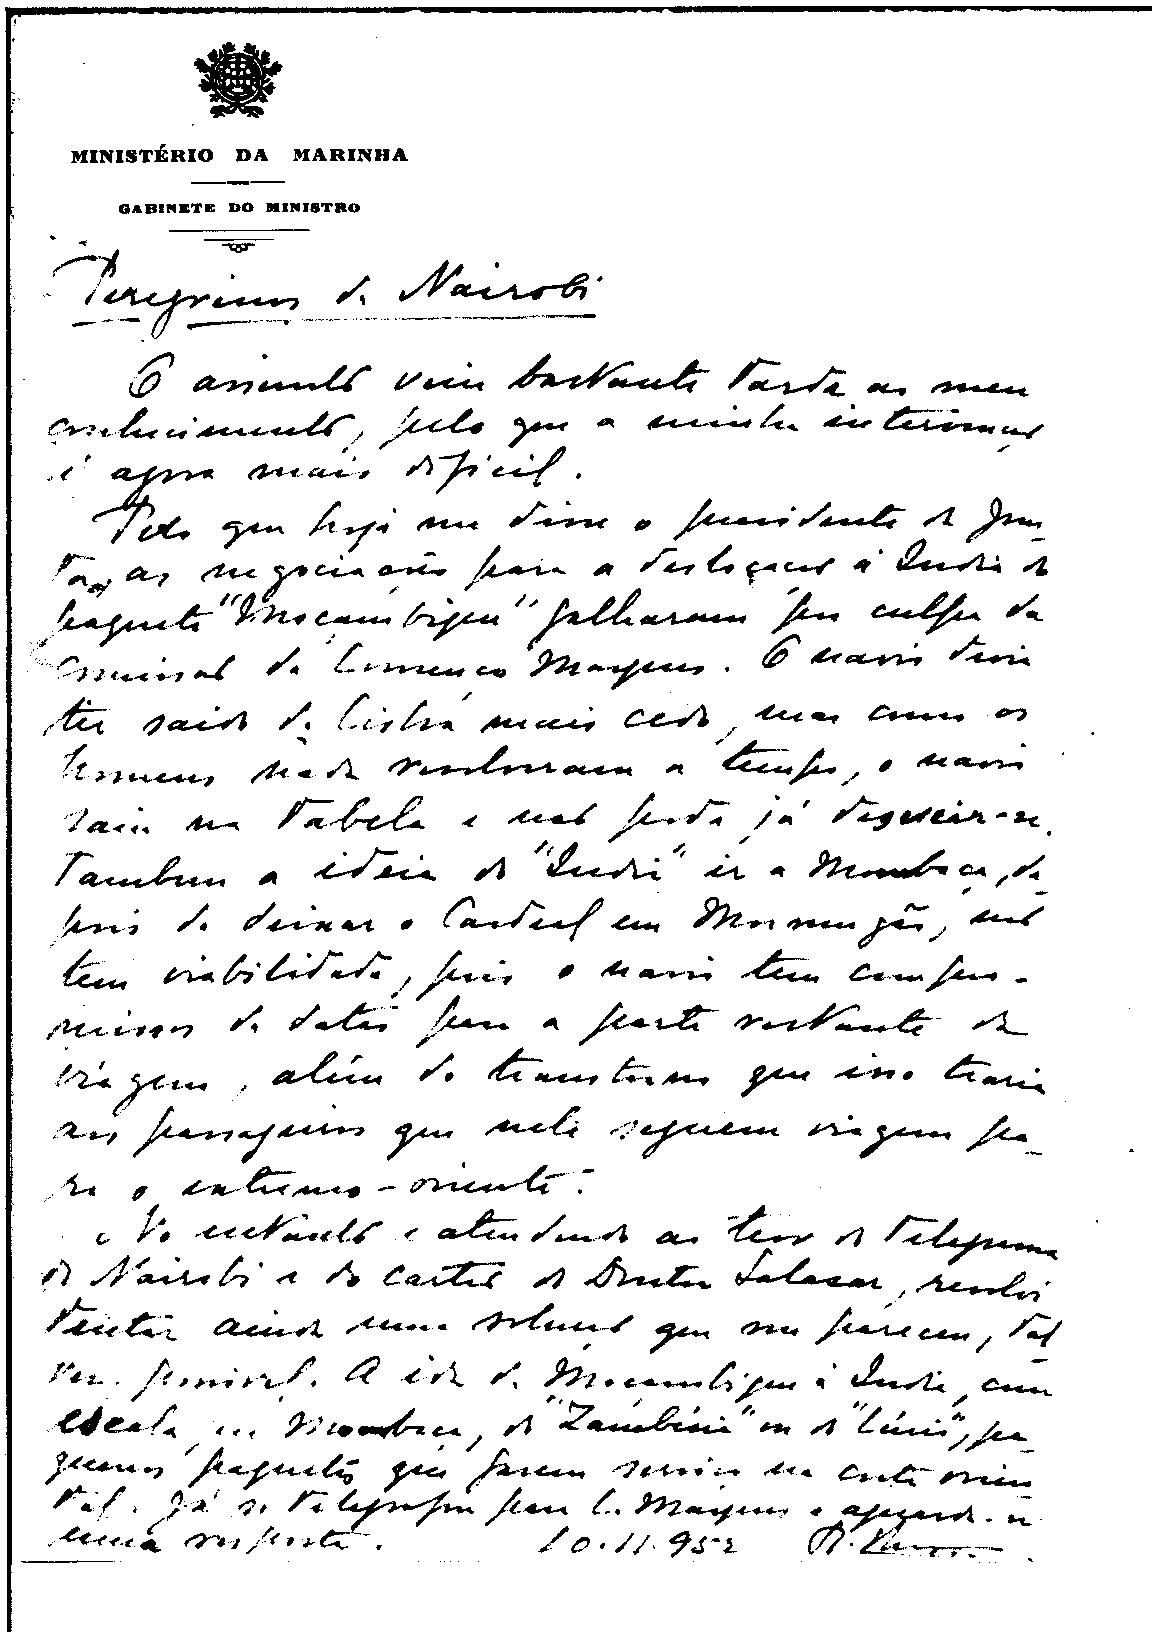 MINISTÉRIO DA MARINHA
GABINETE DO MINISTRO
Peregrinos de Nairobi
O assunto veiu bastante tarde ao meu
conhecimento, pelo que a minha intervenção
é agora mais dificil.
Pelo que hoje me disse o presidente da Jun-
ta, as negociações para a deslocação à India do
paquete "Moçambique" falharam por culpa da
comissão de Lourenço Marques. O navio devia
ter saido de Lisboa mais cedo, mas como os
homens nada resolveram a tempo, o navio
saiu na tabela e não poda já
Tambem a ideia do "India" ir a Mombaça, de-
pois de deixar o Cardeal em Mormugão, não
tem viabilidade, pois o navio tem compro-
missos de datas para a parte restante da
viagem, além do transtorno que isso traria
aos passageiros que nele seguem viagem pa-
ra o extremo-oriente.
No entanto e atendendo ao teor do telegrama
de Nairobi e do cartão do Doutor Salazar, resolvi
tentar ainda uma solução que me pareceu, tal
vez possivel. A ida de Moçambique à India, com
escala em Mombaça, do "Zambézia" ou do "Lúrio", pe-
quenos paquetes que fazem serviço na costa orien
tal. Já se telegrafou para L. Marques e aguarda-se
uma resposta. 10.11.952